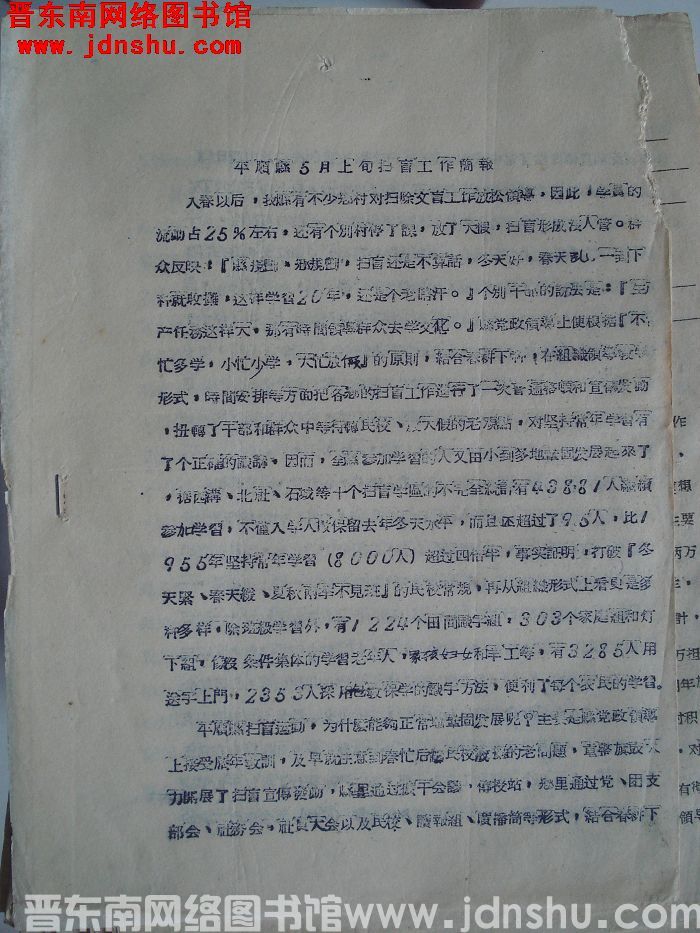 晋东南网络图书馆
www.jdnshu.com
平順縣5月上旬扫盲工作簡報
入春以后，我縣有不少鄉村对扫除文盲工作放松領導，因此，学員的
流动占25%左右，还有个别村停了課，放了大假，扫盲形成没人管。群
众反映：『縣規劃、鄉規劃，扫盲还是不算話，冬天好，春天乱，一到下
种就收攤，这样学習20年，还是个老 汗。』个别干部的說法是：『生
产任務这样大，那有時間領導群众去学文化。』縣党政領導上便根据『不
忙多学，小忙少学，大忙放假』的原則，結合春耕下种，在組織領導
形式，時間安排等方面把各鄉的扫盲工作進行了一次普遍整頓和宣傳發动
，扭轉了干部和群众中等待轉民校、放大假的老观點，对坚持常年学習有
了个正確的認識。因而，全縣参加学習的人又由小到多地鞏固发展起來了
，据 溝、北 、石城等十个扫盲学區的不完全統計有43881人繼續
参加学習，不僅入学人数保留去年冬天水平，而且还超过了95人，比1
955年坚持常年学習（8000人）超过四倍半，事实証明，打破『冬
天緊、春天緩、夏秋兩季不見班』的民校常規，再从組織形式上看更是多
种多样，除班級学習外，有1224个田間識字組，303个家庭組和灯
下組，個没条件集体的学習老年人，家孩妇女和羊工等，有3285人用
送字上門，2353人採用包教保学的識字方法，便利了每个农民的学習。
平順縣扫盲运动，为什麽能夠正常地鞏固发展呢？主要是縣党政領導
上接受历年教訓，及早就注意到春忙后 民校 的老問題，
力開展了扫盲宣傳發动，縣里通过 干会議，傳授站，鄉里通过党、团支
部会、社務会，社員大会以及民校、讀報組、廣播筒等形式，結合春耕下
晋东南网络图书馆www.jdnshu.com